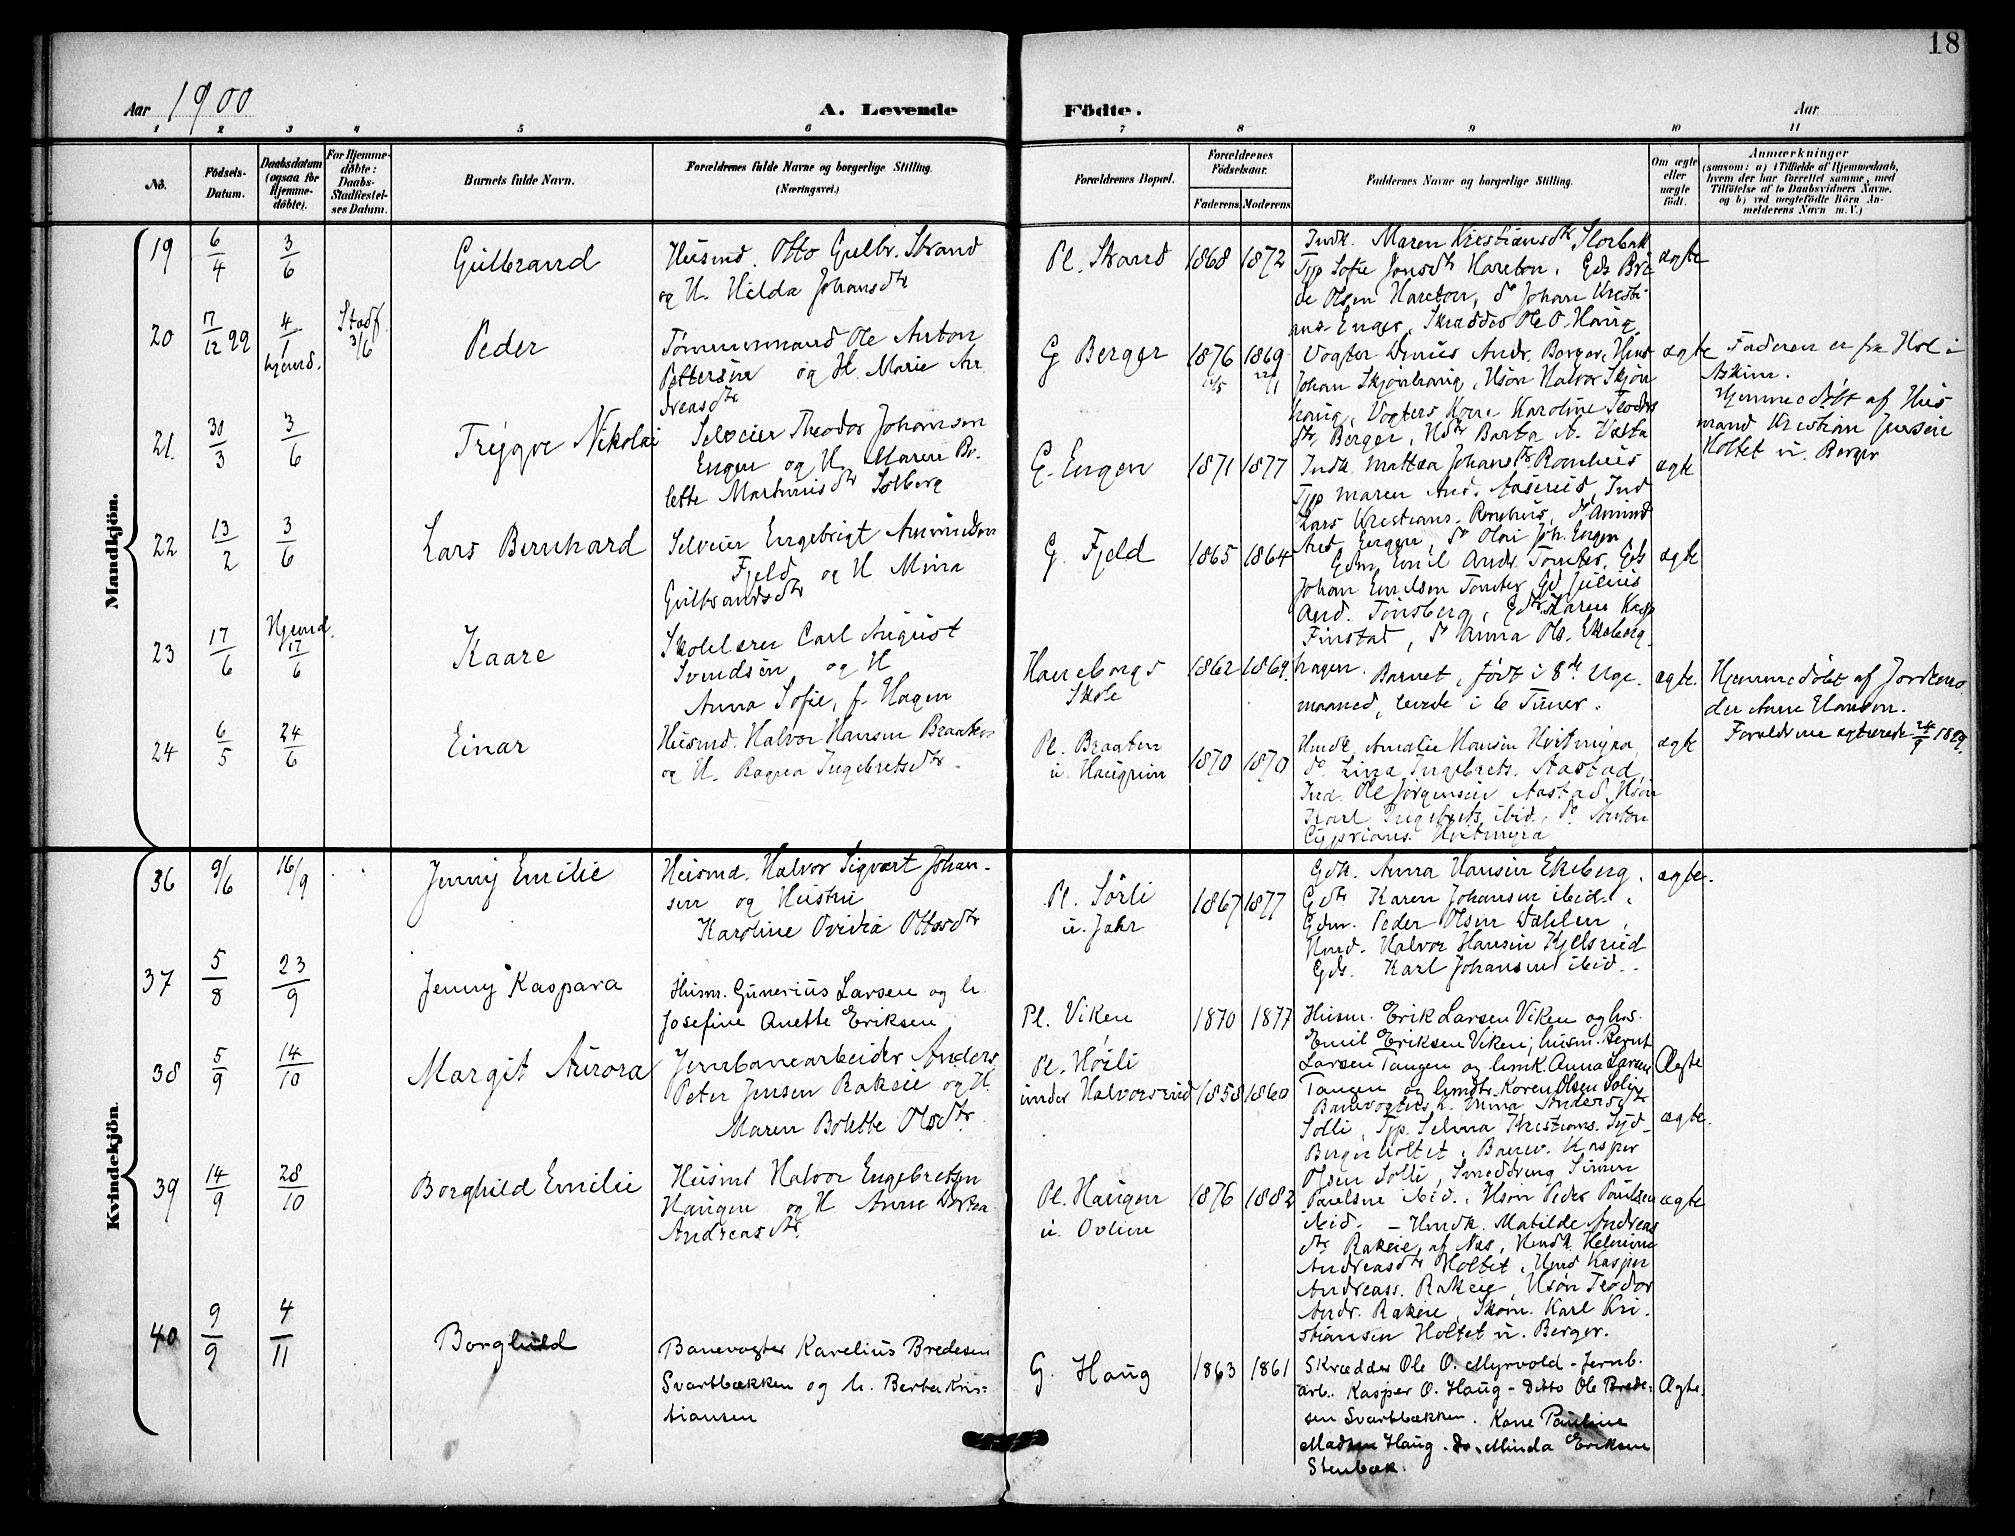 18
Aar 1900
A. Levende
Födte.
Aar
1 2 3 4 5 6 7 8 9 10 11
No.
Födsels-
Datum.
Daabsdatum
(ogsaa for
Hjemme-
döbte).
For Hjemme-
döbte:
Daabs-
Stadfæstel-
ses Datum.
Barnets fulde Navn.
Forældrenes fulde Navne og borgerlige Stilling.
(Næringsvei.)
Forældrenes Bopæl.
Forældrenes
Födselsaar.
Faderens. Moderens.
Faddernes Navne og borgerlige Stilling.
Om ægte
eller
uægte
födt.
Anmærkninger
(saasom: a) i Tilfælde af Hjemmedaab,
hvem der har forrettet samme, med
Tilföielse af to Daabsvidners Navne.
og b) ved uægtefödte Börn An-
melderens Navn m. V.)
Mandkjön.
19
6/4
3/6
Gulbrand
Husmd. Otto Gulbr. Strand
og H. Hilda Johansdtr
Pl. Strand
1868
1872
Indk. Maren Kristiansdtr
Tjp Sofie Jonsdtr
Olsen
Johan Kristi-
ans. Enger, Skrædder Ole O. Haug
ægte
20
17/12 99
4/1
hjemd.
Stadf.
3/6
Peder
Tömmermand Ole Anton
Pettersen og H. Marie An
dreasdtr
G Berger
1876
1869
Vogter Andr. Berger,
Johan Skjönhaug, Halvor Skjön
haug, Vogters Kone Karoline
Berger,
ægte
Faderen er fra Hol i
Askim.
Hjemmedöbt af Hus
mand Kristian Jensen
Holtet u. Berger
21.
30/3
3/6
Trygve Nikolai
Selveier Theodor Johansen
Engen og H. Maren Bo-
lette Martiniusdtr Solberg
G. Engen
1871
1877
Indk. Mattea Johansdtr Romhus
Tjp Maren And. Aaserud, Ind
Lars Kristians.
And. Engen, do Olai Joh. Engen
ægte
22
13/2
3/6
Lars Bernhard
Selveier Engebrigt Amundsen
Fjeld og H Mina
Gulbrandsdtr
G. Fjeld
1865
1864
Gdm Emil Andr. Tomter,
Johan Emilsen Tomter, Julius
And. Tönsberg, Karen
Finstad, do Anna Ols. Ekeberg-
hagen.
ægte
23
17/6
Hjemd.
17/6
Kaare
Skolelærer Carl August
Svendsen og H
Anna Sofie, f. Hagen
Haneborgs
Skole
1862
1869.
Barnet, födt i 8de Uge.
maaned, levede i 6 Timer.
ægte.
Hjemmedöbt af Jordemo
der Anne Hansen.
24
6/5
24/6
Einar
Husmd. Halvor Hansen Braaten
og H. Ragna Ingebretsdtr.
Pl. Braaten
u. Haugrim
1870
1870
Hmdk. Amalie Hansen Hvitmyra
do. Lina Ingebrets. Aastad,
Ind. Ole Jörgensen Aastad
Karl Ingebrets. ibid., do. Anton
Cyprians. Hvitmyra
ægte
Forældrene ægteviede 24/9 1899.
Kvindekjön.
36
9/6
16/9
Jenny Emilie
Husmd. Halvor Sigvart Johan-
sen og Hustru
Karoline Ovidia Ottosdtr
Pl. Sörli
u. Jahr
1867
1877
Gdk. Anna Hansen Ekeberg.
Gdtr Karen Johansen ibid.,
Gdm. Peder Olsen Dahlen,
Hmd. Halvor Hansen Kjelsrud
Gds. Karl Johansen ibid..
ægte.
37
5/8
23/9
Jenny Kaspara
Husm. Gunerius Larsen og h.
Josefine Anette Eriksen
Pl. Viken
1870
1877
Husm. Erik Larsen Viken og hs.
Emil Eriksen Viken; husm. Bernt
Larsen Tangen og hmk. Anna Larsen
Tangen og hmdtr. Karen Olsen Solie
Ægte
38
5/9
14/10
Margit Aurora
Jernbanearbeider Anders
Peter Jensen Rakeie og H.
Maren Bolette Olsdtr
Pl. Höili
under Halvorsrud
1858
1860
Banevogters h. Mina Andersdtr
Solli, Tjp. Selma Kristians.
Bergerholtet, Banev. Kasper
Olsen Solli, Smeddreng Simen
Paulsen ibid., Hsön Peder Paulsen
ibid.
ægte.
39
14/9
28/10
Borghild Emilie
Husmd Halvor Engebretsen
Haugen og H Anne Dortea
Andreasdtr.
Pl. Haugen
u. Ovlien
1876
1882
Hmdk. Matilde Andreas
dtr Rakeie af Næs, Hmdk. Helmine
Andreasdtr Holtet, Hmd Kasper
Andreass. Rakeie, Hsön Teodor
Andr. Rakeie, Skom. Karl Kri-
stiansen Holtet u. Berger.
ægte
40
9/9
4/11
Borghild
Banevogter Karelius Bredesen
Svartbækken og h. Berte Kris-
tiansen
G. Haug
1863
1861
Skrædder Ole O. Myrvold - Jernb.
arb. Kasper O. Haug - Ditto Ole Brede-
sen Svartbækken. Kone Pauline
Madsen Haug. do. Minda Eriksen
Stenbæk.
Ægte.